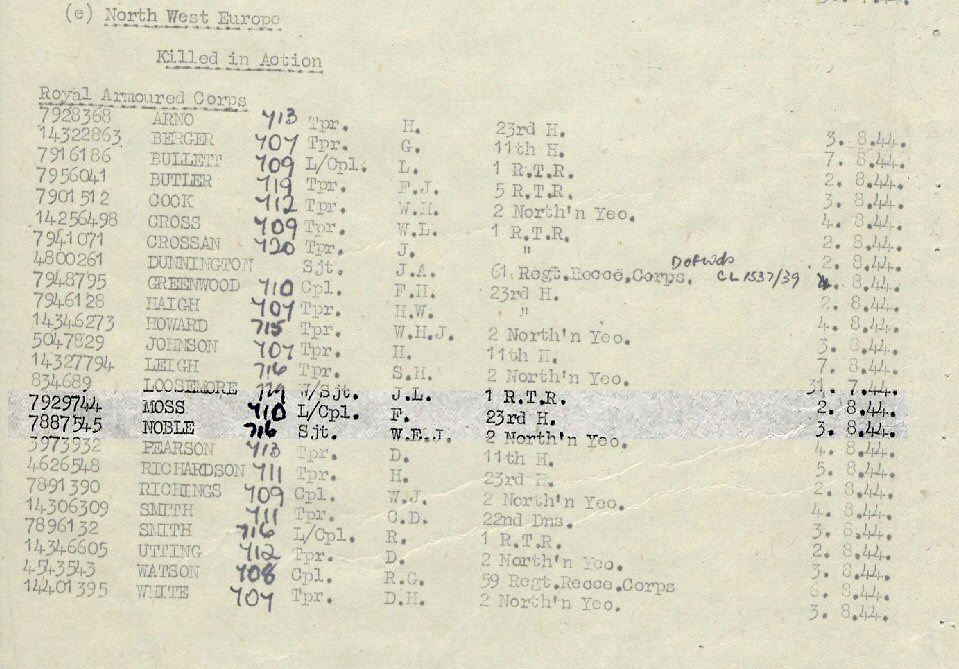 (e) North West Europe
Killed in Action
Royal Armoured Corps
7928368 ARNO 713 Tpr. H. 23rd H. 3. 8.44.
14322863 BERGER 707 Tpr. G. 11th H. 7. 8.44.
7916186 BULLETT 709 L/Cpl. L. 1 R.T.R. 2. 8.44.
7956041 BUTLER 719 Tpr. F.J. 5 R.T.R. 3. 8.44.
7901512 COCK 712 Tpr. W.H. 2 North'n Yeo. 4. 8.44.
14256498 CROSS 709 Tpr. W.L. 1 R.T.R. 2. 8.44.
7941071 CROSSAN 720 Tpr. J. " 2. 8.44.
4800261 DUNNINGTON Sjt. J.A. 61 Regt.Recce.Corps. DofWds CL1537/39 8.44.
7948795 GREENWOOD 710 Cpl. F.H. 23rd H. 2. 8.44.
7946128 HAIGH 707 Tpr. H.W. " 4. 8.44.
14346273 HOWARD 715 Tpr. W.H.J. 2 North'n Yeo. 3. 8.44.
5047829 JOHNSON 707 Tpr. H. 11th H. 7. 8.44.
14327794 LEIGH 716 Tpr. S.H. 2 North'n Yeo. 31. 7.44.
834689 LOOSEMORE W/Sjt. J.L. 1 R.T.R. 2. 8.44.
7929744 MOSS 710 L/Cpl. F. 23rd H. 3. 8.44.
7887545 NOBLE 716 Sjt. W.E.J. 2 North'n Yeo. 4. 8.44.
3973932 PEARSON 713 Tpr. D. 11th H. 5. 8.44.
4626548 RICHARDSON 711 Tpr. H. 23rd H. 2. 8.44.
7891390 RICHINGS 709 Cpl. W.J. 2 North'n Yeo. 4. 8.44.
14306309 SMITH 711 Tpr. C.D. 22nd Dns. 3. 8.44.
7896132 SMITH 716 L/Cpl. R. 1 R.T.R. 2. 8.44.
14346605 UTTING 712 Tpr. D. 2 North'n Yeo. 3. 8.44.
4543543 WATSON 708 Cpl. R.G. 59 Regt.Recce.Corps 6. 8.44.
14401395 WHITE 707 Tpr. D.H. 2 North'n Yeo. 3. 8.44.